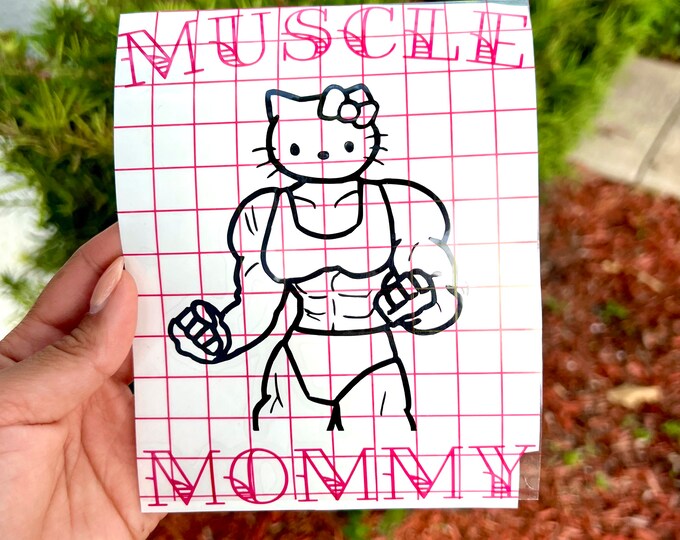 MUSCLE
MOMMY